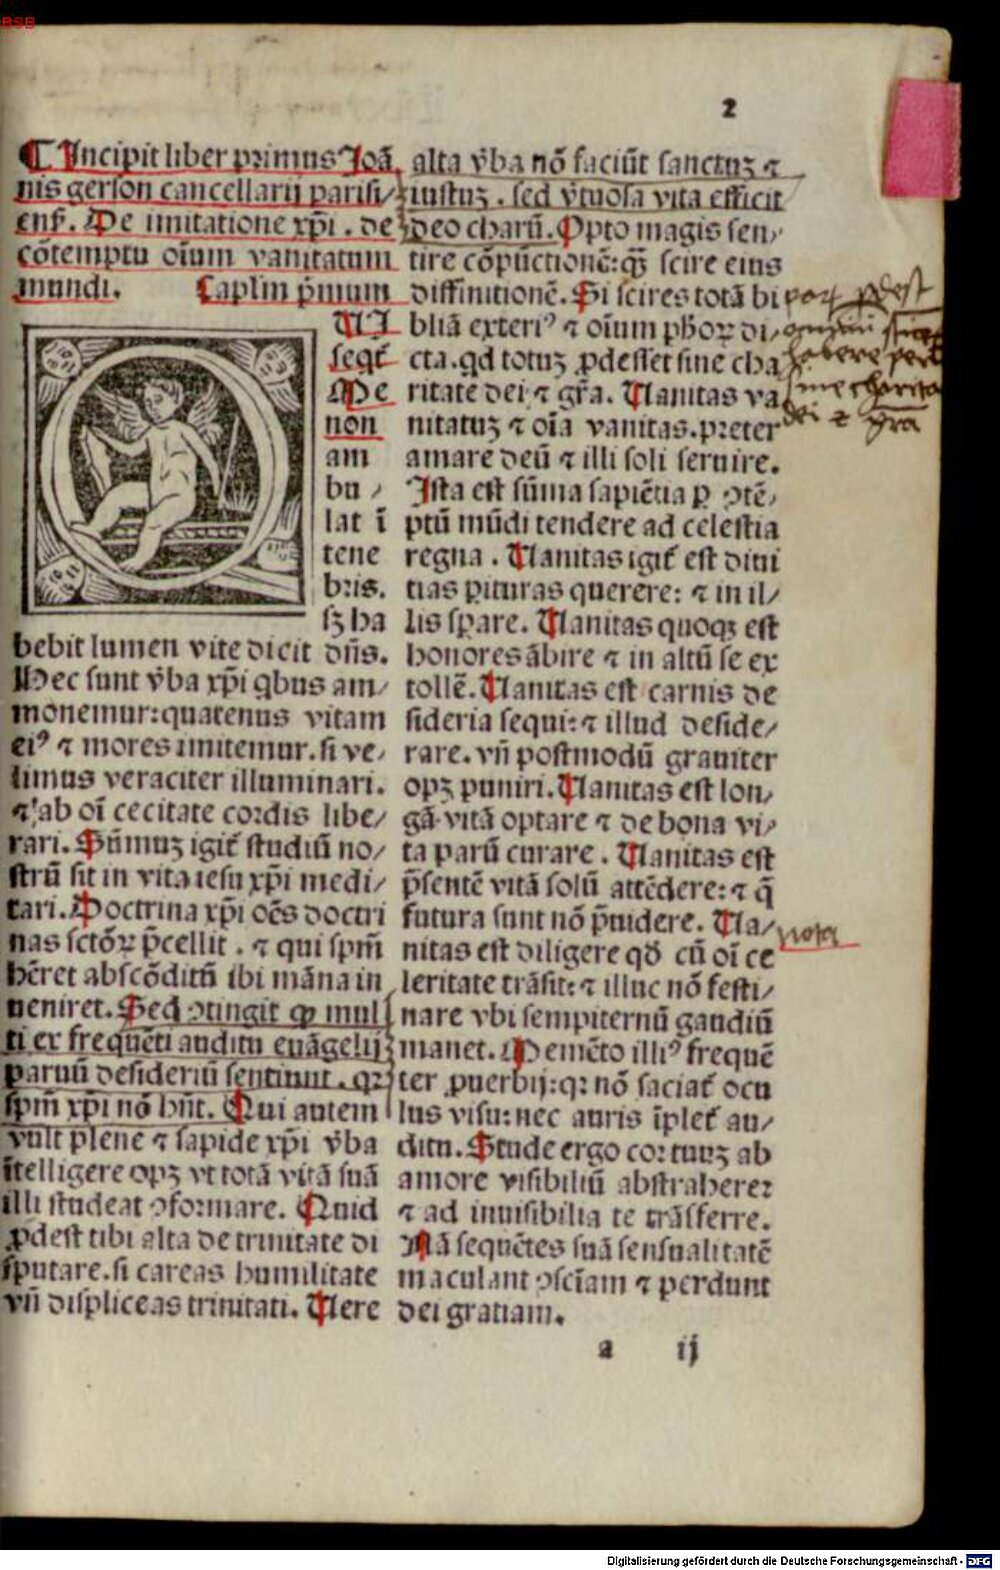 BSB
2
¶ Incipit liber primus Joā
nis gerson cancellarij parisi/
enſ. De imitatione xp̄i . de
cōtemptu oīum vanitatum
mundi. Caplm p̄mum
UI
seqt̄
Me
non
am
bu /
lat ī
tene
bris.
sꝫ ha
bebit lumen vite dicit dn̄s.
Hec sunt v̄ba xp̄i qbus am/
monemur: quatenus vitam
eiꝰ ⁊ mores imitemur. si ve/
limus veraciter illuminari.
⁊ ab oī cecitate cordis libe/
rari. Sūmuꝫ igit̄ studiū no/
strū sit in vita iesu xp̄i medi/
tari. Doctrina xp̄i oēs doctri
nas sctōꝝ p̄cellit . ⁊ qui spm̄
hēret abscōditū ibi māna in
ueniret. Sed ↄtingit ꝙ mul
ti ex frequēti auditu euāgelij
paruū desideriū sentiunt . qꝛ
spm̄ xp̄i nō hn̄t. Qui autem
vult plene ⁊ sapide xp̄i v̄ba
ītelligere opꝫ vt totā vitā suā
illi studeat ↄformare. Quid
ꝓdest tibi alta de trinitate di
sputare. si careas humilitate
vn̄ displiceas trinitati. Uere
alta v̄ba nō faciūt sanctuꝫ ⁊
iustuꝫ . sed v̄tuosa vita efficit
deo charū. Opto magis sen/
tire cōpūctionē: qꝫ̄ scire eius
diffinitionē. Si scires totā bi
bliā exteriꝰ ⁊ oīum ph̄oꝝ di/
cta. qd totuꝫ ꝓdesset sine cha
ritate dei ⁊ gr̄a. Uanitas va
nitatuꝫ ⁊ oīa vanitas. preter
amare deū ⁊ illi soli seruire.
Ista est sūma sapiētia ꝑ ↄtē/
ptū mūdi tendere ad celestia
regna . Uanitas igit̄ est diui
tias ꝑituras querere: ⁊ in il/
lis sꝑare. Uanitas quoqꝫ est
honores ābire ⁊ in altū se ex
tollē. Uanitas est carnis de
sideria sequi: ⁊ illud deside/
rare. vn̄ postmodū grauiter
opꝫ puniri. Uanitas est lon/
gā vitā optare ⁊ de bona vi/
ta parū curare . Uanitas est
p̄sentē vitā solū attēdere: ⁊ q̄
futura sunt nō p̄uidere. Ua/
nitas est diligere qd̄ cū oī ce
leritate trāsit: ⁊ illuc nō festi/
nare vbi sempiternū gaudiū
manet. Memēto illiꝰ frequē
ter ꝓuerbij: qꝛ nō saciat̄ ocu
lus visu: nec auris īplet̄ au/
ditu. Stude ergo cor tuuꝫ ab
amore visibiliū abstrahere:
⁊ ad inuisibilia te trāsferre.
Nā sequētes suā sensualitatē
maculant ↄsciam ⁊ perdunt
dei gratiam.
ꝓdest
omniū
habere
sine charita
dei ⁊ gr̄a
nota
a ij
Digitalisierung gefördert durch die Deutsche Forschungsgemeinschaft - DFG